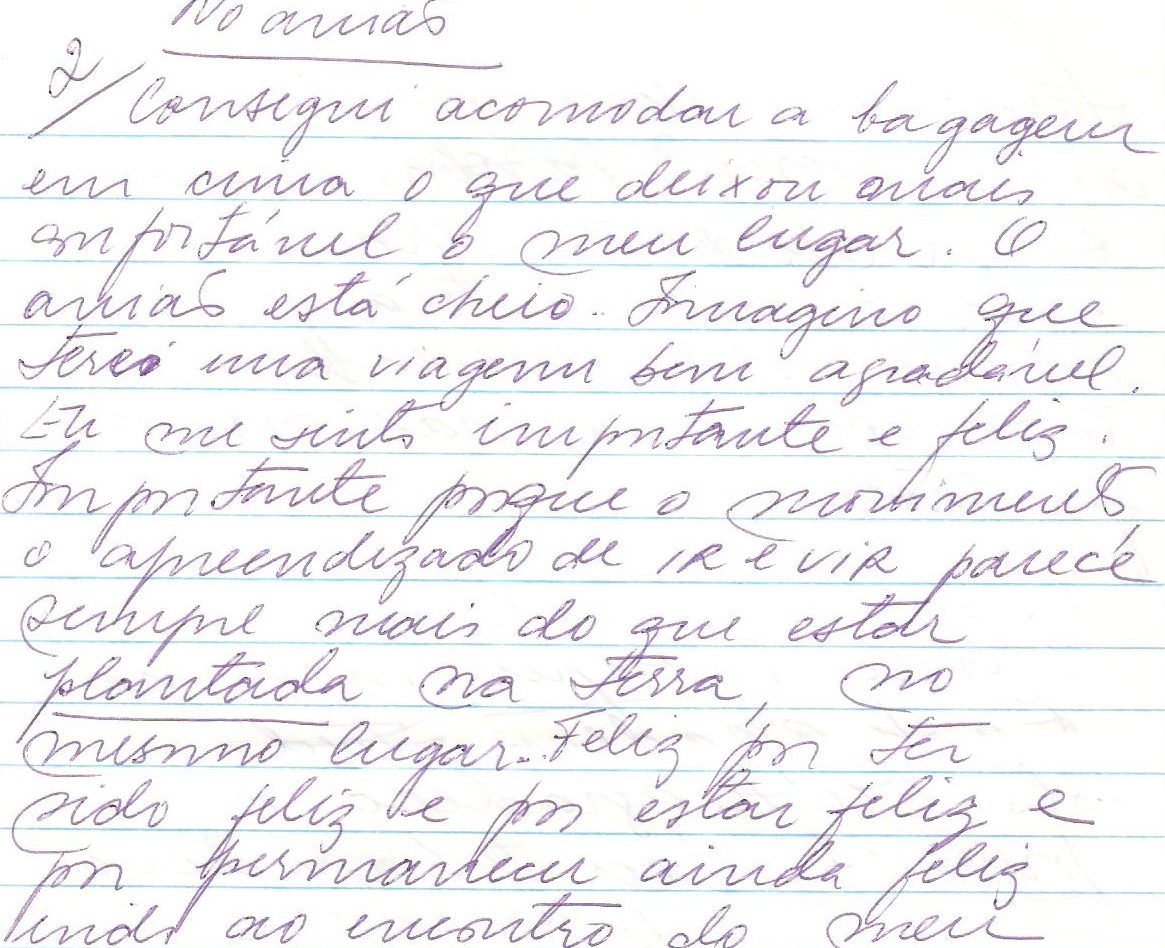 No avião
2/ Consegui acomodar a bagagem
em cima o que deixou mais
confortável o meu lugar. O
avião está cheio. Imagino que
terei uma viagem bem agradável.
Eu me sinto importante e feliz.
Importante porque o movimento,
o apreendizado de IR e VIR parece
sempre mais do que estar
plantada na terra, no
mesmo lugar. Feliz por ter
sido feliz e por estar feliz e
por permanecer ainda feliz
indo ao encontro do meu